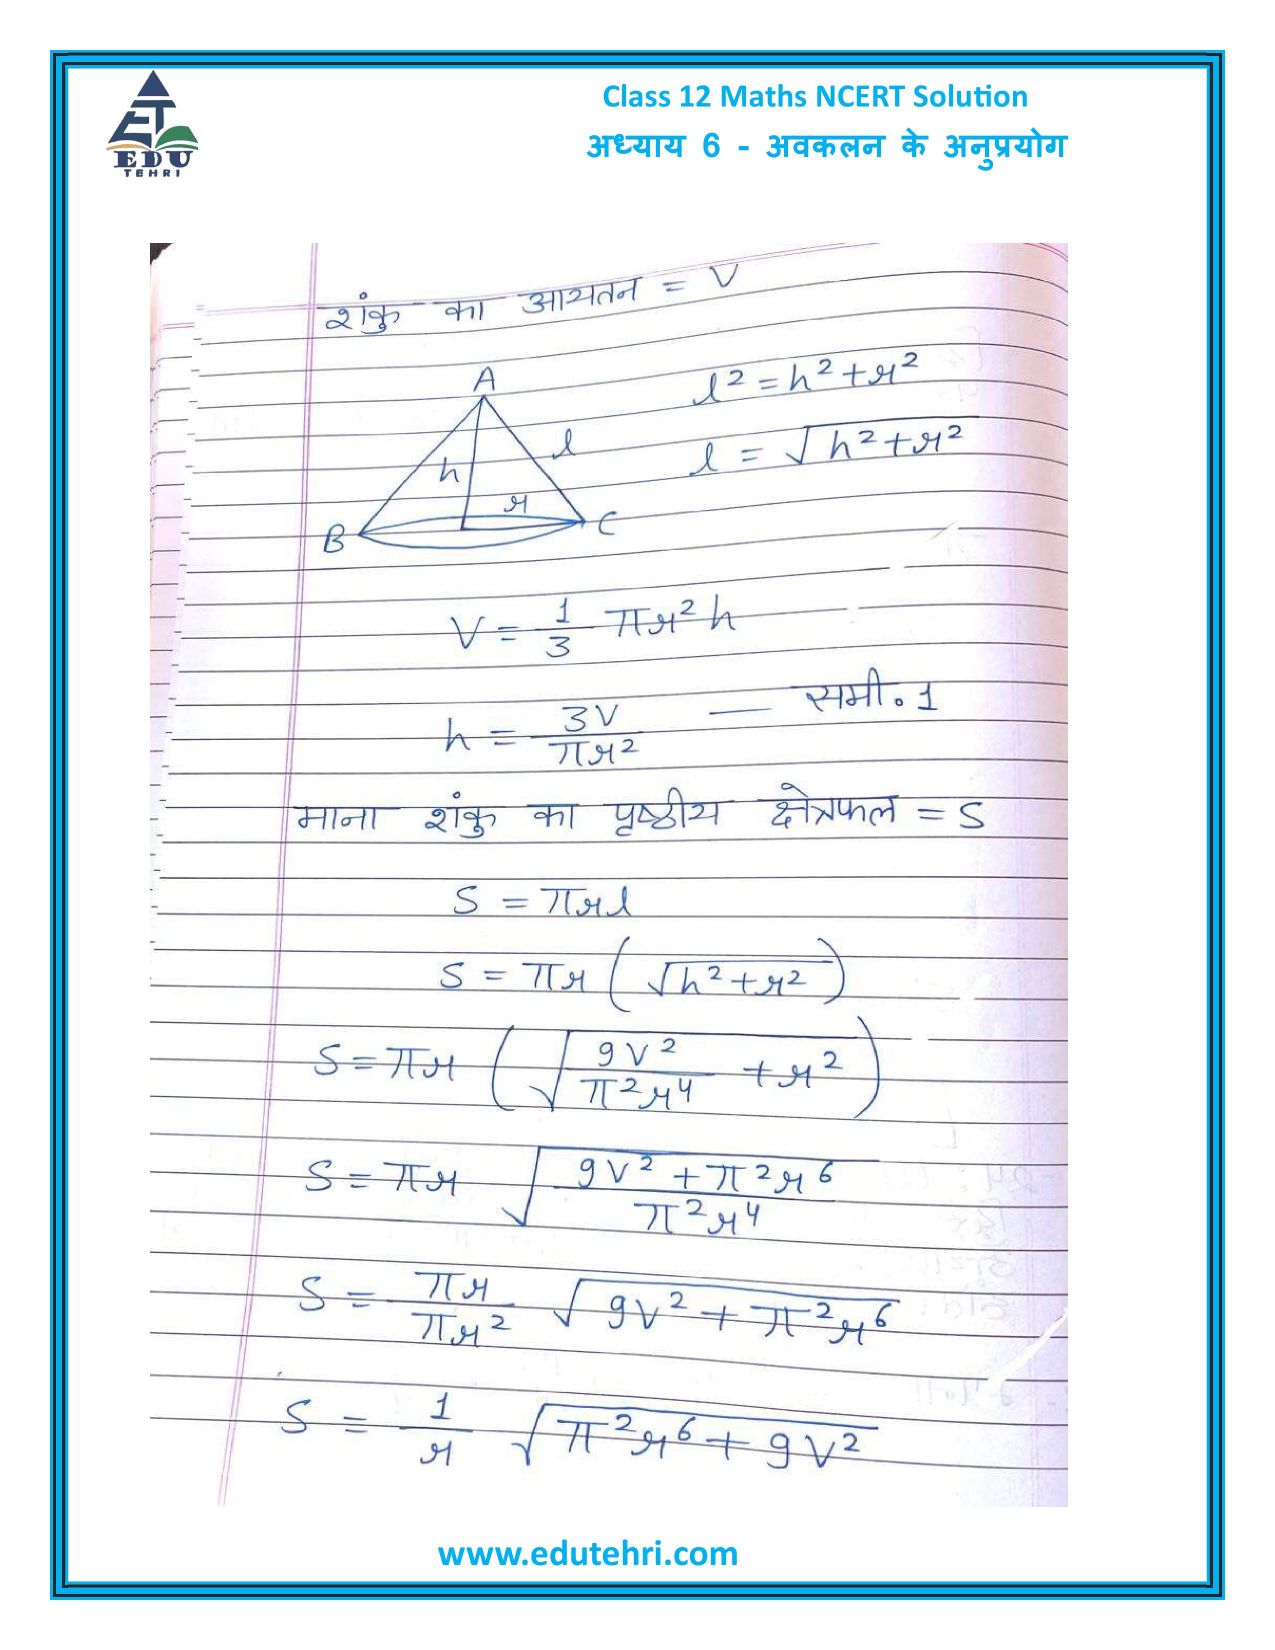 Class 12 Maths NCERT Solution
अध्याय 6 - अवकलन के अनुप्रयोग
ET
EDU
TEHRI
शंकु का आयतन = V
A
l² = h² + r²
l
l = √(h² + r²)
h
r
B
C
V = 1/3 πr²h
h = 3V/πr² — समी. 1
माना शंकु का पृष्ठीय क्षेत्रफल = S
S = πrl
S = πr (√(h² + r²))
S = πr (√(9V²/π²r⁴ + r²))
S = πr √((9V² + π²r⁶)/π²r⁴)
S = πr/πr² √(9V² + π²r⁶)
S = 1/r √(π²r⁶ + 9V²)
www.edutehri.com